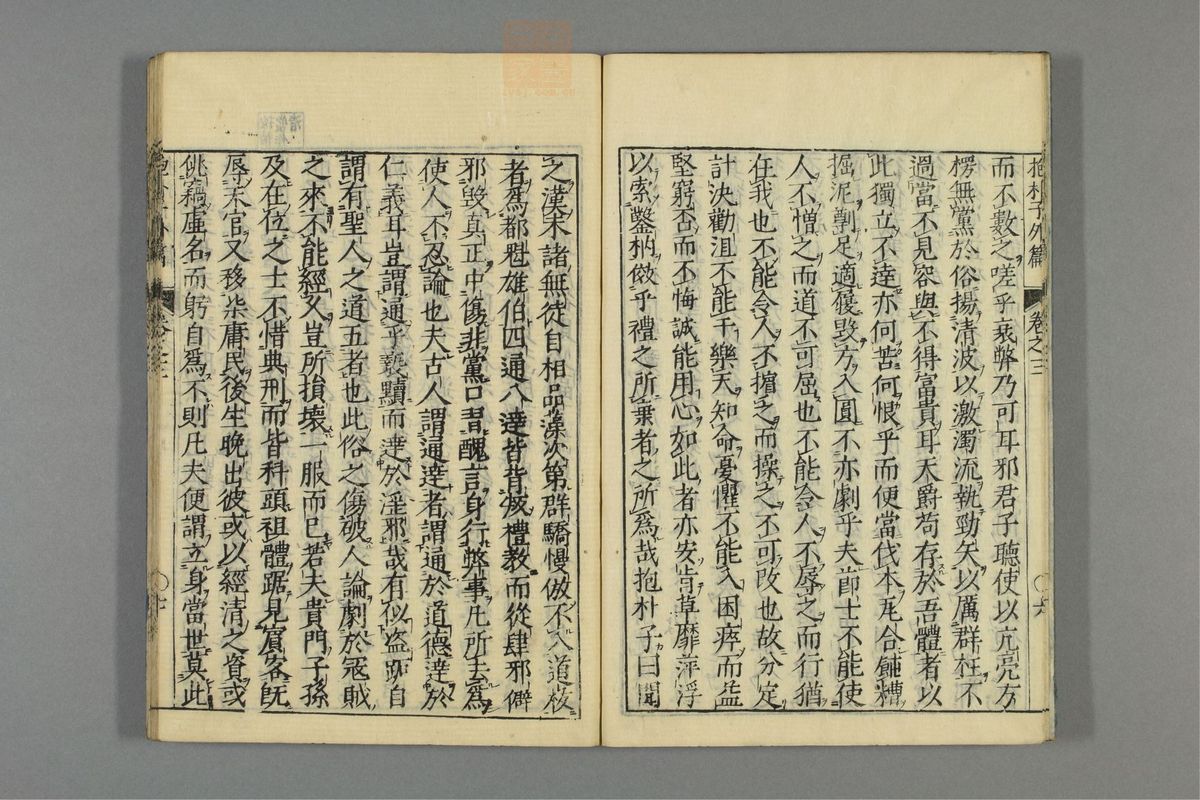 抱朴子外篇　卷之三　〇六
而不數之嗟乎衰弊乃可耳邪君子聽使以亢亮方
楞無黨於俗揚清波以激濁流執勁矢以厲群枉不
過當不見容與不得富貴耳天爵苟存於吾體者以
此獨立不達亦何苦何恨乎而便當伐本瓦合餔糟
掘泥剸足適履毀方入圓不亦劇乎夫節士不能使
人不憎之而道不可屈也不能令人不辱之而行猶
在我也不能令人不擯之而操之不可改也故分定
計決勸沮不能干樂天知命憂懼不能入困瘁而益
堅窮否而不悔誠能用心如此者亦安肯草靡萍浮
以索鑿枘傚乎禮之所棄者之所爲哉抱朴子曰聞
之漢末諸無徒自相品藻次第群驕慢傲不入道檢
者爲都魁雄伯四通八達皆背叛禮教而從肆邪僻
邪毀真正中傷非黨口習醜言身行弊事凡所去爲
使人不忍論也夫古人謂通達者謂通於道德達於
仁義耳豈謂通乎褻黷而達於淫邪哉有似盜跖自
謂有聖人之道五者也此俗之傷破人論劇於寇賊
之來不能經久豈所損壞一服而已若夫貴門子孫
及在位之士不惜典刑而皆科頭袒體踞見賓客旣
辱天官又移染庸民後生晚出彼或以經清之資或
佻竊虛名而躬自爲不則凡夫便謂立身當世莫此